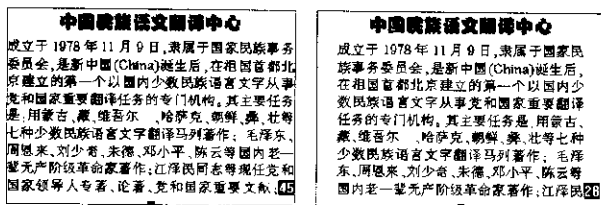 中国民族语文翻译中心
成立于1978年11月9日,隶属于国家民族事务
委员会,是新中国(China)诞生后,在祖国首都北
京建立的第一个以国内少数民族语言文字从事
党和国家重要翻译任务的专门机构。其主要任务
是:用蒙古、藏、维吾尔 、哈萨克、朝鲜、彝、壮等
七种少数民族语言文字翻译马列著作; 毛泽东、
周恩来、刘少奇、朱德、邓小平、陈云等国内老一
辈无产阶级革命家著作;江泽民同志等现任党和
国家领导人专著、论著、党和国家重要文献;45
中国民族语文翻译中心
成立于1978年11月9日,隶属于国家民
族事务委员会,是新中国(China)诞生后,
在祖国首都北京建立的第一个以国内少
数民族语言文字从事党和国家重要翻译
任务的专门机构。其主要任务是:用蒙古、
藏、维吾尔 、哈萨克、朝鲜、彝、壮等七种
少数民族语言文字翻译马列著作; 毛泽
东、周恩来、刘少奇、朱德、邓小平、陈云等
国内老一辈无产阶级革命家著作;江泽民28